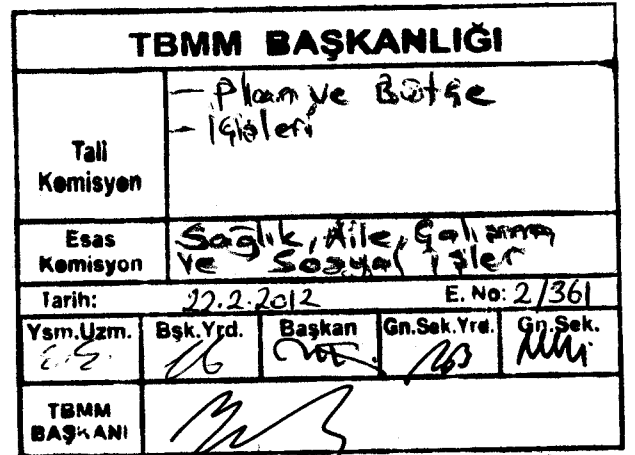 TBMM BAŞKANLIĞI
Tali
Komisyon
- Plan ve Bütçe
- İçişleri
Esas
Komisyon
Sağlık, Aile, Çalışma
ve Sosyal İşler
Tarih: 22.2.2012 E. No: 2/361
Ysm.Uzm. Bşk.Yrd. Başkan Gn.Sek.Yrd. Gn.Sek.
TBMM
BAŞKANI